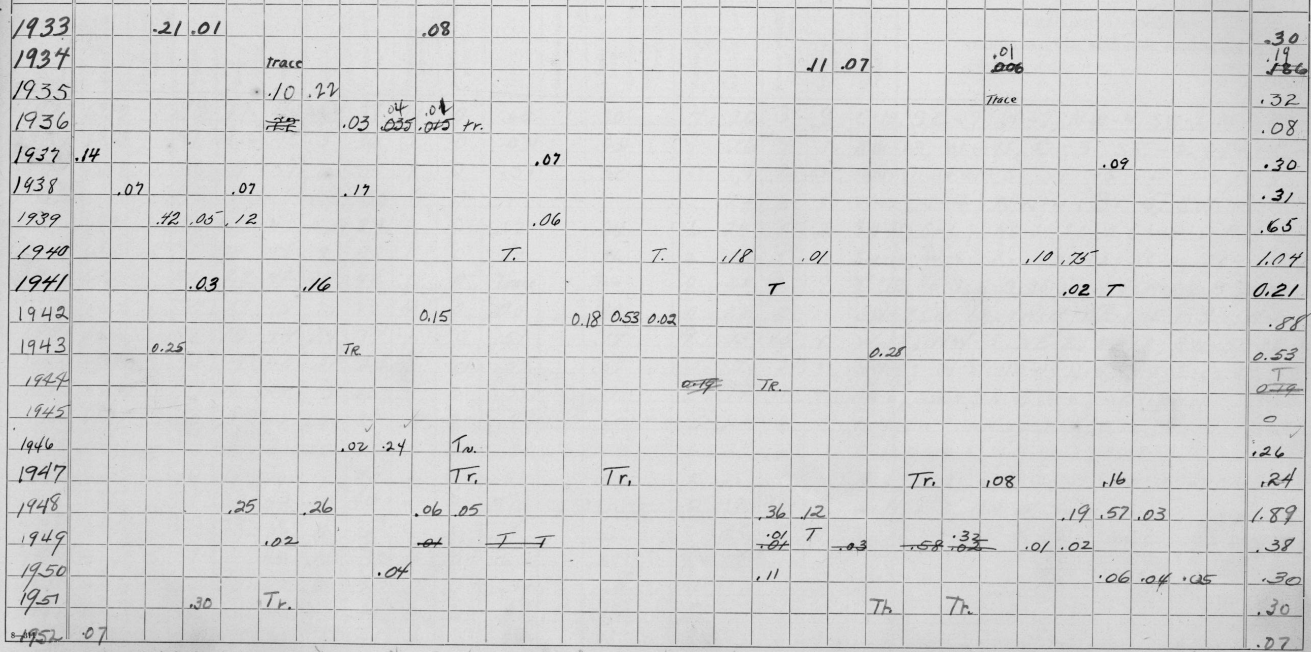 1933 .21 .01 .08 .30
1934 trace .11 .07 .01 .006 .19 .186
1935 .10 .22 Trace .32
1936 .22 .03 .04 .035 .01 .015 tr. .08
1937 .14 .07 .09 .30
1938 .07 .07 .17 .31
1939 .42 .05 .12 .06 .65
1940 T. T. .18 .01 .10 .75 1.04
1941 .03 .16 T .02 T 0.21
1942 0.15 0.18 0.53 0.02 .88
1943 0.25 TR 0.28 0.53
1944 0.19 TR. T 0.19
1945 0
1946 .02 .24 Tr. .26
1947 Tr. Tr. Tr. .08 .16 .24
1948 .25 .26 .06 .05 .36 .12 .19 .57 .03 1.89
1949 .02 .01 T T .01 .01 T .03 .58 .32 .02 .01 .02 .38
1950 .04 .11 .06 .04 .05 .30
1951 .30 Tr. Tr. Tr. .30
1952 .07 .07